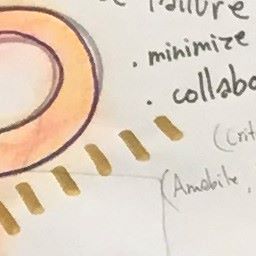 failure
· minimize
· collabo
(crit
(Amabile,